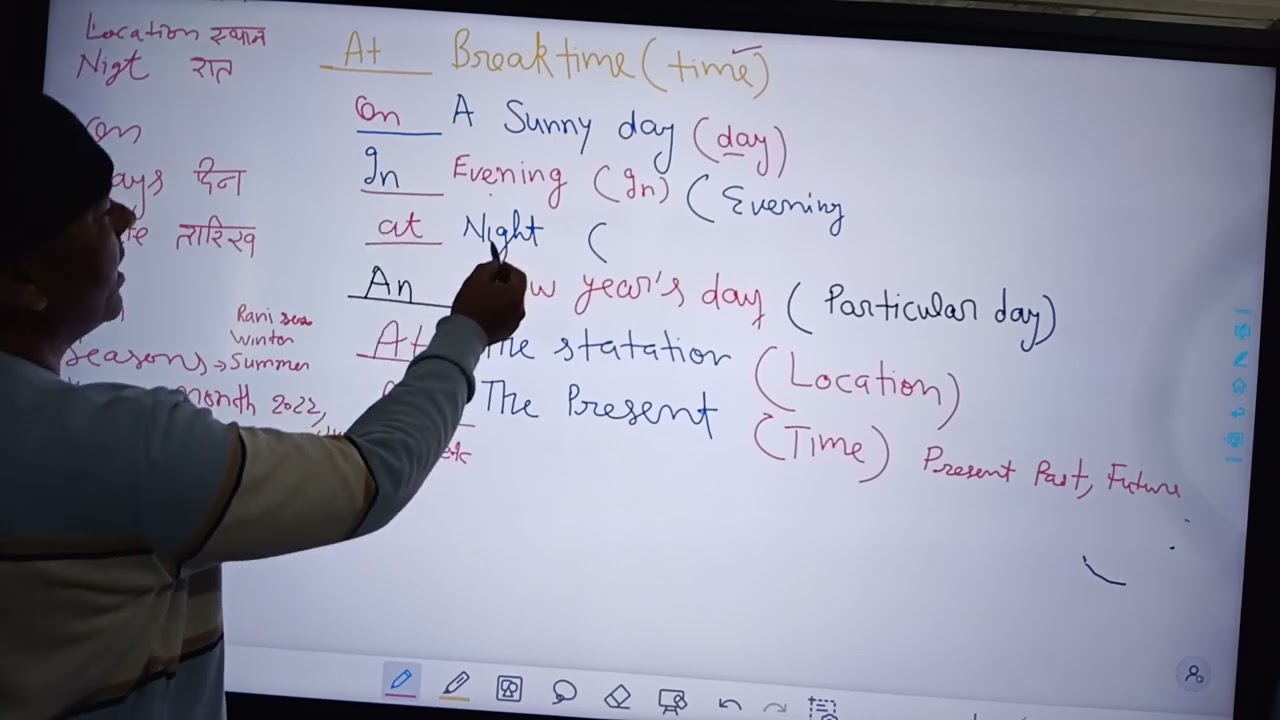 Location स्थान
Nigt रात
on
days दिन
तारिख
Rani sea
Winter
Seasons → Summer
month 2022,
At Break time (time)
on A Sunny day (day)
In Evening (In) (Evening
at Night (
An year's day (Particular day)
At The statation (Location)
The Present (Time) Present Past, Future